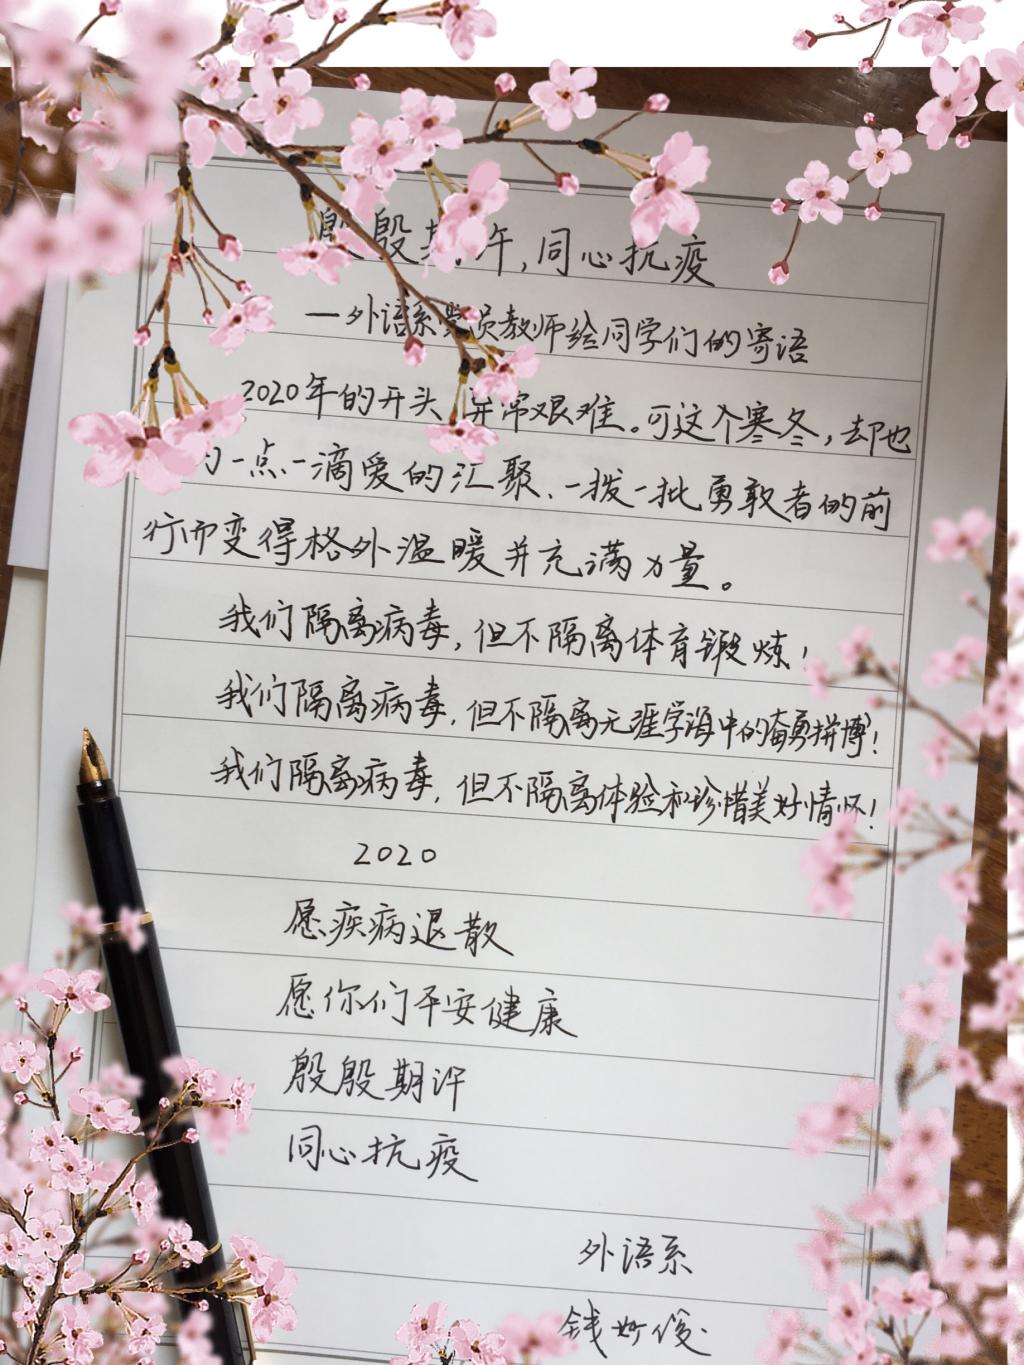 殷殷期许,同心抗疫
—外语系党员教师给同学们的寄语
2020年的开头,异常艰难。可这个寒冬,却也
一点一滴爱的汇聚、一拨一批勇敢者的前
行而变得格外温暖并充满力量。
我们隔离病毒,但不隔离体育锻炼!
我们隔离病毒,但不隔离无涯学海中的奋勇拼博!
我们隔离病毒,但不隔离体验和珍惜美好情怀!
2020
愿疾病退散
愿你们平安健康
殷殷期许
同心抗疫
外语系
钱